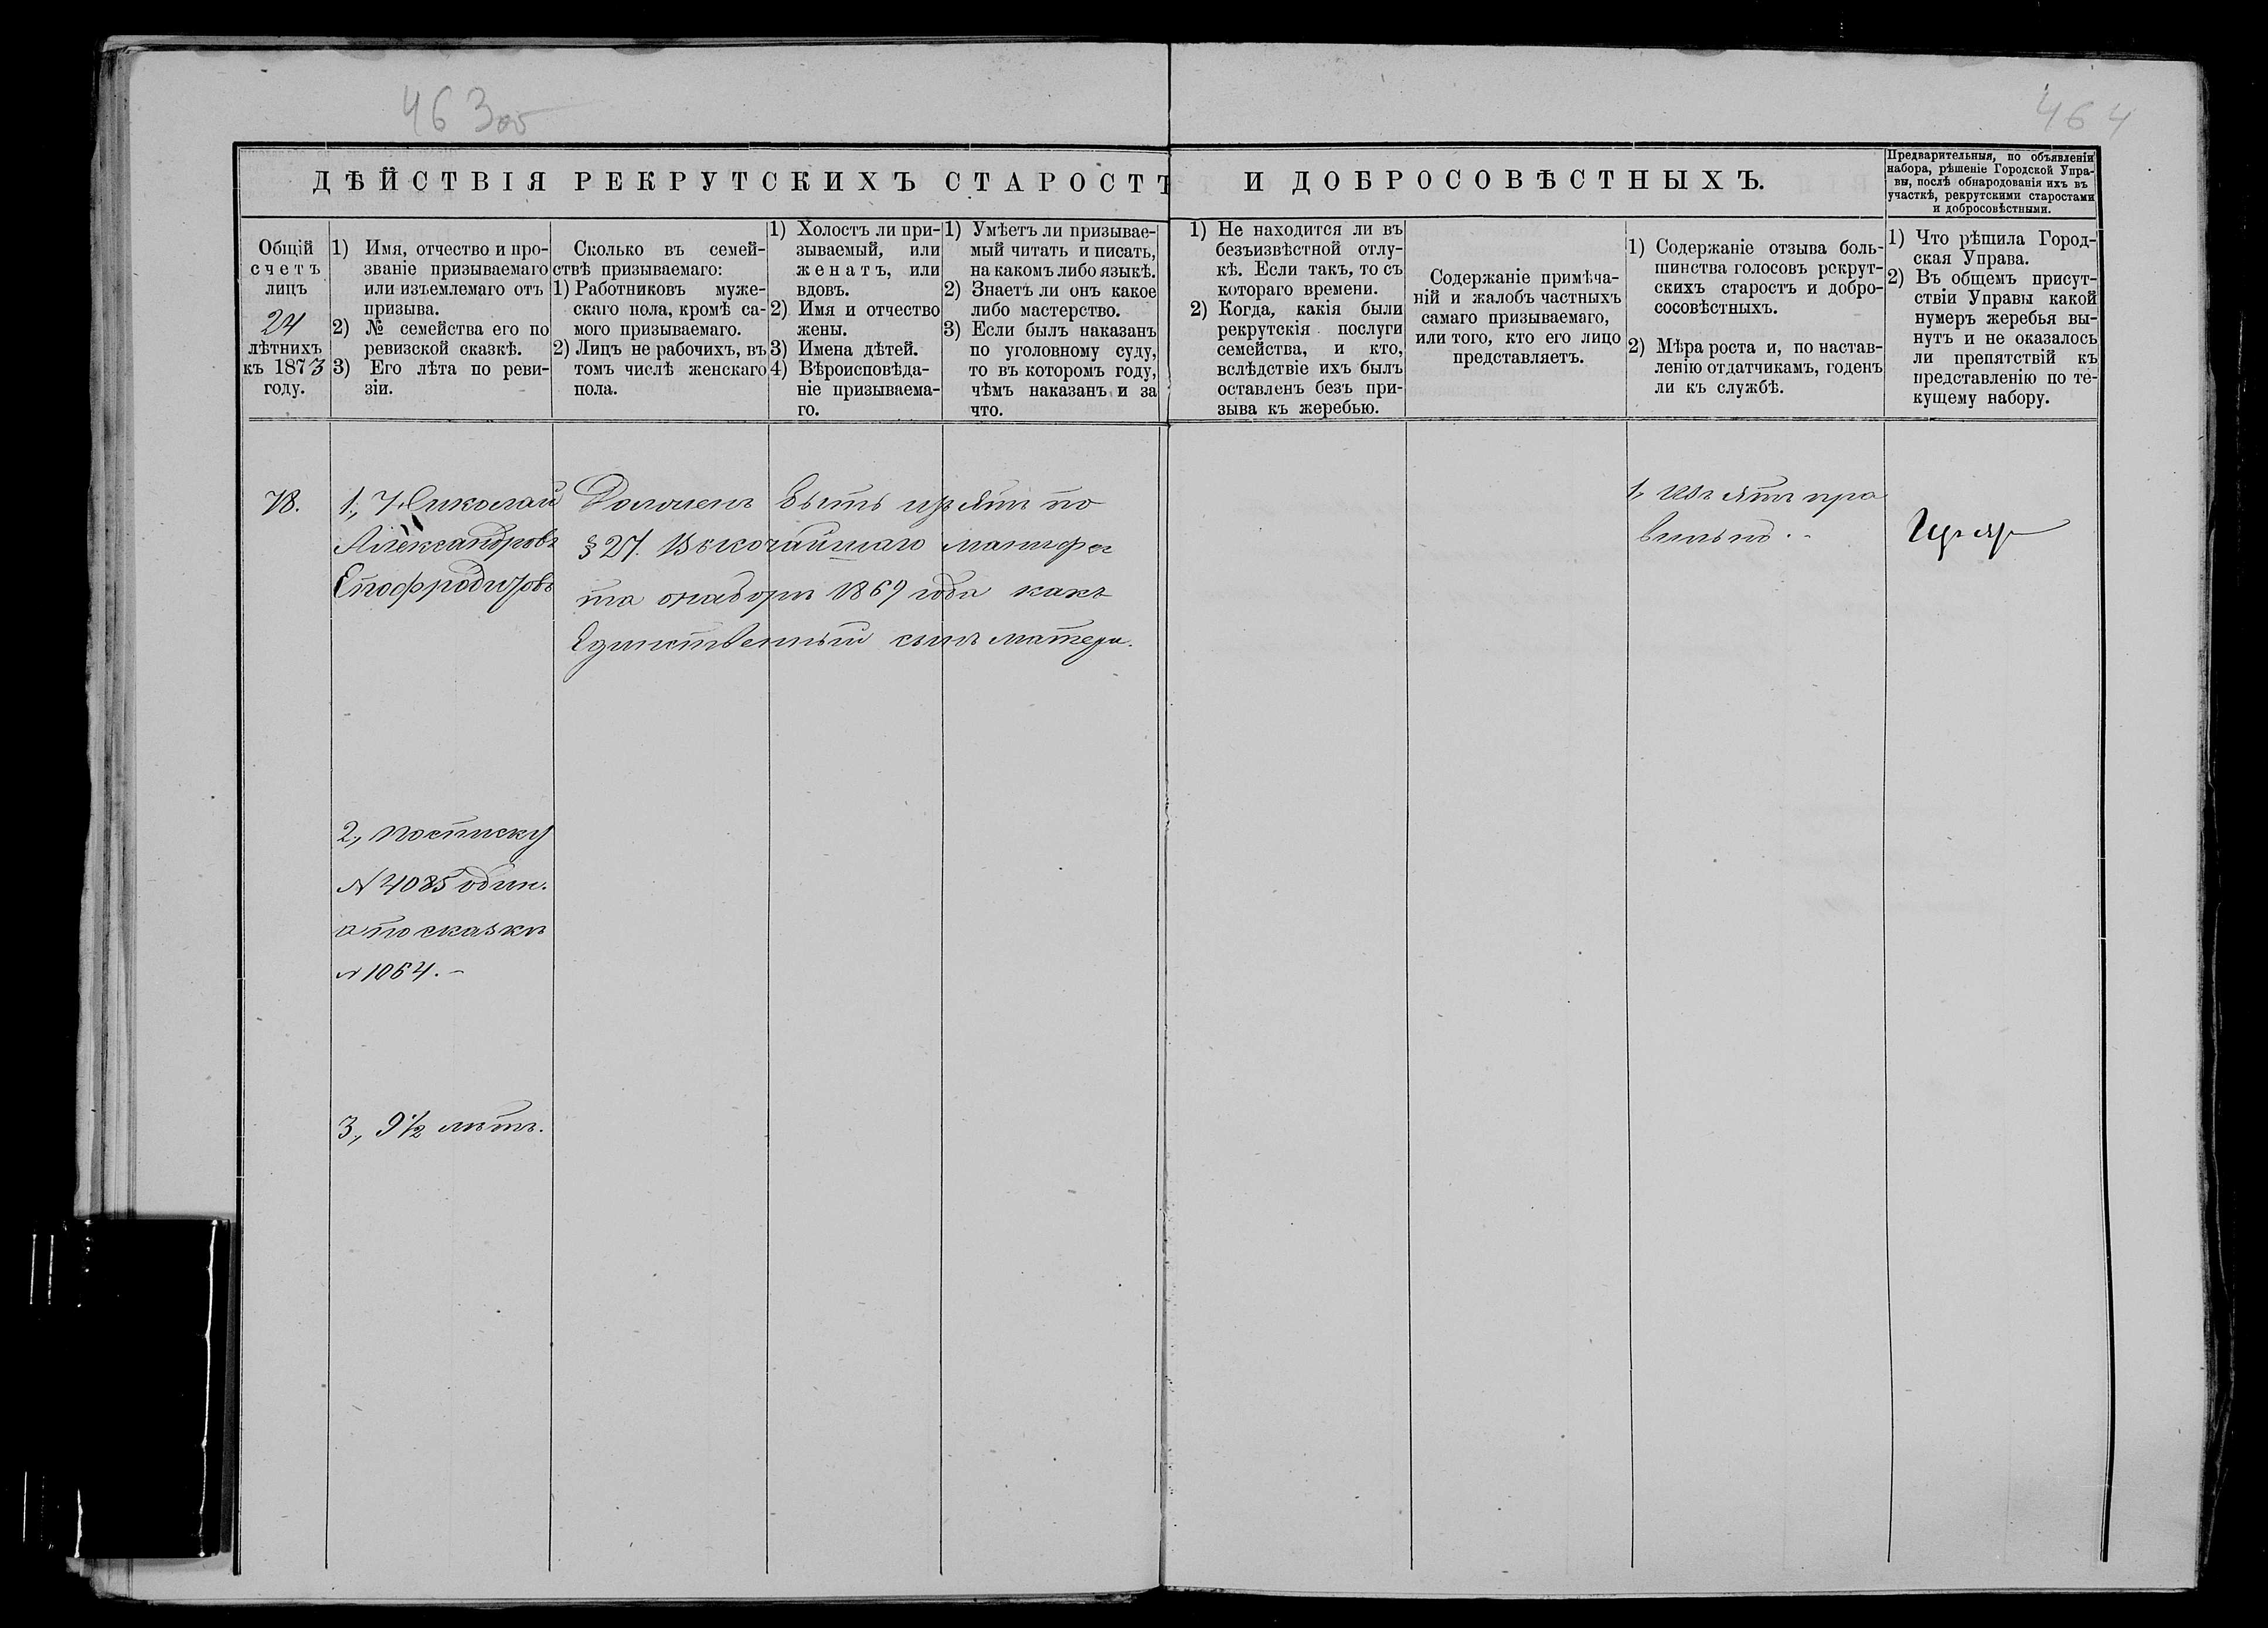 463 об
464
ДѢЙСТВІЯ РЕКРУТСКИХЪ СТАРОСТЪ И ДОБРОСОВѢСТНЫХЪ.
Предварительныя, по объявленіи
набора, рѣшеніе Городской Упра-
вы, послѣ обнародованія ихъ въ
участкѣ, рекрутскими старостами
и добросовѣстными.
Общій
счетъ
лицъ
24
лѣтнихъ
къ 1873
году.
1) Имя, отчество и про-
званіе призываемаго
или изъемлемаго отъ
призыва.
2) № семейства его по
ревизской сказкѣ.
3) Его лѣта по реви-
зіи.
Сколько въ семей-
ствѣ призываемаго:
1) Работниковъ муже-
скаго пола, кромѣ са-
мого призываемаго.
2) Лицъ не рабочихъ, въ
томъ числѣ женскаго
пола.
1) Холостъ ли при-
зываемый, или
женатъ, или
вдовъ.
2) Имя и отчество
жены.
3) Имена дѣтей.
4) Вѣроисповѣда-
ніе призываема-
го.
1) Умѣетъ ли призывае-
мый читать и писать,
на какомъ либо языкѣ.
2) Знаетъ ли онъ какое
либо мастерство.
3) Если былъ наказанъ
по уголовному суду,
то въ которомъ году,
чѣмъ наказанъ и за
что.
1) Не находится ли въ
безъизвѣстной отлу-
кѣ. Если такъ, то съ
котораго времени.
2) Когда, какія были
рекрутскія послуги
семейства, и кто,
вслѣдствіе ихъ былъ
оставленъ безъ при-
зыва къ жеребью.
Содержаніе примѣча-
ній и жалобъ частныхъ
самаго призываемаго,
или того, кто его лицо
представляетъ.
1) Содержаніе отзыва боль-
шинства голосовъ рекрут-
скихъ старостъ и добро-
сосовѣстныхъ.
2) Мѣра роста и, по настав-
ленію отдатчикамъ, годенъ
ли къ службѣ.
1) Что рѣшила Город-
ская Управа.
2) Въ общемъ присут-
ствіи Управы какой
нумеръ жеребья вы-
нутъ и не оказалось
ли препятствій къ
представленію по те-
кущему набору.
78.
1, Николай
Александровъ
Епафродитовъ
Долженъ быть изъятъ по
§ 27. Высочайшаго манифес
та о наборѣ 1869 года какъ
Единственный сынъ матери.
1, Изъятъ пра
вильно.
2, по списку
№ 4085 один.
а по сказкѣ
№ 1064.
3, 9½ лѣтъ.